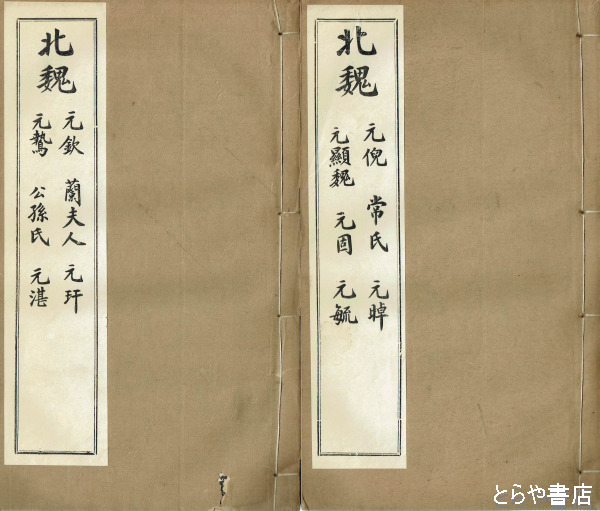 北魏
元欽 蘭夫人 元玕
元鷙 公孫氏 元湛
北魏
元倪 常氏 元晫
元顯魏 元固 元毓
とらや書店